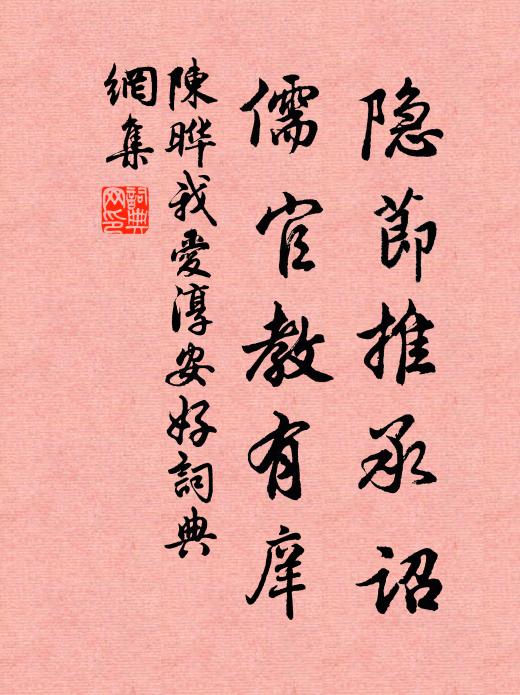 隐節推承詔
儒官教有庠
陳晔我愛淳安好詞典
網集
詞典網印